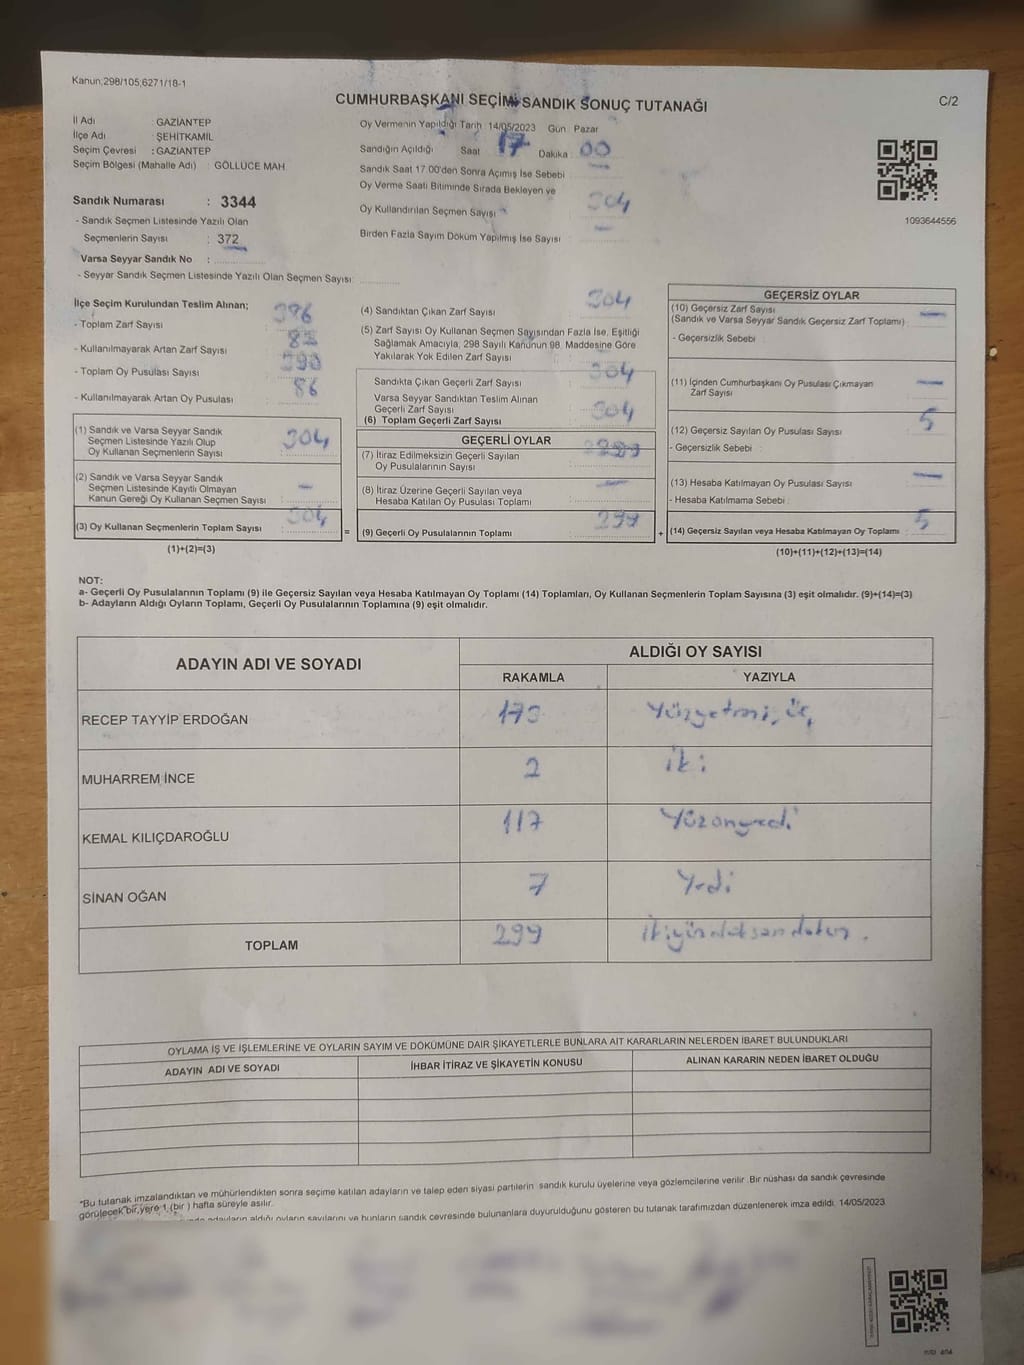 Kanun;298/105;6271/18-1
CUMHURBAŞKANI SEÇİMİ SANDIK SONUÇ TUTANAĞI
C/2
İl Adı : GAZİANTEP
İlçe Adı : ŞEHİTKAMİL
Seçim Çevresi : GAZİANTEP
Seçim Bölgesi (Mahalle Adı) : GÖLLÜCE MAH
Sandık Numarası : 3344
- Sandık Seçmen Listesinde Yazılı Olan
Seçmenlerin Sayısı : 372
Varsa Seyyar Sandık No :
- Seyyar Sandık Seçmen Listesinde Yazılı Olan Seçmen Sayısı:
Oy Vermenin Yapıldığı Tarih : 14/05/2023 Gün : Pazar
Sandığın Açıldığı Saat : 17 Dakika : 00
Sandık Saat 17.00'den Sonra Açımış İse Sebebi : —
Oy Verme Saati Bitiminde Sırada Bekleyen ve
Oy Kullandırılan Seçmen Sayısı : 304
Birden Fazla Sayım Döküm Yapılmış İse Sayısı : —
1093644556
İlçe Seçim Kurulundan Teslim Alınan;
- Toplam Zarf Sayısı : 396
- Kullanılmayarak Artan Zarf Sayısı :
- Toplam Oy Pusulası Sayısı : 390
- Kullanılmayarak Artan Oy Pusulası : 86
(1) Sandık ve Varsa Seyyar Sandık
Seçmen Listesinde Yazılı Olup
Oy Kullanan Seçmenlerin Sayısı : 304
(2) Sandık ve Varsa Seyyar Sandık
Seçmen Listesinde Kayıtlı Olmayan
Kanun Gereği Oy Kullanan Seçmen Sayısı : —
(3) Oy Kullanan Seçmenlerin Toplam Sayısı : 304
(1)+(2)=(3)
=
(4) Sandıktan Çıkan Zarf Sayısı : 304
(5) Zarf Sayısı Oy Kullanan Seçmen Sayısından Fazla İse, Eşitliği
Sağlamak Amacıyla, 298 Sayılı Kanunun 98. Maddesine Göre
Yakılarak Yok Edilen Zarf Sayısı :
Sandıkta Çıkan Geçerli Zarf Sayısı : 304
Varsa Seyyar Sandıktan Teslim Alınan
Geçerli Zarf Sayısı :
(6) Toplam Geçerli Zarf Sayısı : 304
GEÇERLİ OYLAR
(7) İtiraz Edilmeksizin Geçerli Sayılan
Oy Pusulalarının Sayısı : 299
(8) İtiraz Üzerine Geçerli Sayılan veya
Hesaba Katılan Oy Pusulası Toplamı : —
(9) Geçerli Oy Pusulalarının Toplamı : 299
+
GEÇERSİZ OYLAR
(10) Geçersiz Zarf Sayısı
(Sandık ve Varsa Seyyar Sandık Geçersiz Zarf Toplamı) : —
- Geçersizlik Sebebi :
(11) İçinden Cumhurbaşkanı Oy Pusulası Çıkmayan
Zarf Sayısı : —
(12) Geçersiz Sayılan Oy Pusulası Sayısı : 5
- Geçersizlik Sebebi :
(13) Hesaba Katılmayan Oy Pusulası Sayısı : —
- Hesaba Katılmama Sebebi :
(14) Geçersiz Sayılan veya Hesaba Katılmayan Oy Toplamı : 5
(10)+(11)+(12)+(13)=(14)
NOT:
a- Geçerli Oy Pusulalarının Toplamı (9) ile Geçersiz Sayılan veya Hesaba Katılmayan Oy Toplamı (14) Toplamları, Oy Kullanan Seçmenlerin Toplam Sayısına (3) eşit olmalıdır. (9)+(14)=(3)
b- Adayların Aldığı Oyların Toplamı, Geçerli Oy Pusulalarının Toplamına (9) eşit olmalıdır.
ADAYIN ADI VE SOYADI ALDIĞI OY SAYISI
RAKAMLA YAZIYLA
RECEP TAYYİP ERDOĞAN 173 Yüzyetmiş üç
MUHARREM İNCE 2 iki
KEMAL KILIÇDAROĞLU 117 Yüzonyedi
SİNAN OĞAN 7 Yedi
TOPLAM 299 ikiyüzdoksandokuz.
OYLAMA İŞ VE İŞLEMLERİNE VE OYLARIN SAYIM VE DÖKÜMÜNE DAİR ŞİKAYETLERLE BUNLARA AİT KARARLARIN NELERDEN İBARET BULUNDUKLARI
ADAYIN ADI VE SOYADI İHBAR İTİRAZ VE ŞİKAYETİN KONUSU ALINAN KARARIN NEDEN İBARET OLDUĞU
*Bu tutanak imzalandıktan ve mühürlendikten sonra seçime katılan adayların ve talep eden siyasi partilerin sandık kurulu üyelerine veya gözlemcilerine verilir .Bir nüshası da sandık çevresinde
görülecek bir yere 1 (bir ) hafta süreyle asılır.
adayların aldığı oyların sayılarını ve bunların sandık çevresinde bulunanlara duyurulduğunu gösteren bu tutanak tarafımızdan düzenlenerek imza edildi. 14/05/2023